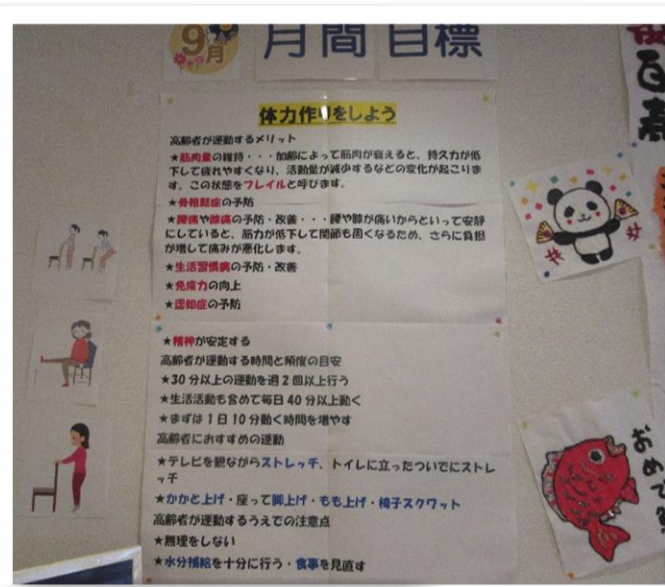 9月
月間目標
体力作りをしよう
高齢者が運動するメリット
★筋肉量の維持・・・加齢によって筋肉が衰えると、持久力が低
下して疲れやすくなり、活動量が減少するなどの変化が起こりま
す。この状態をフレイルと呼びます。
★骨粗鬆症の予防
★腰痛や膝痛の予防・改善・・・腰や膝が痛いからといって安静
にしていると、筋力が低下して関節も固くなるため、さらに負担
が増して痛みが悪化します。
★生活習慣病の予防・改善
★免疫力の向上
★認知症の予防
★精神が安定する
高齢者が運動する時間と頻度の目安
★30分以上の運動を週2回以上行う
★生活活動も含めて毎日40分以上動く
★まずは1日10分動く時間を増やす
高齢者におすすめの運動
★テレビを観ながらストレッチ、トイレに立ったついでにストレ
ッチ
★かかと上げ・座って脚上げ・もも上げ・椅子スクワット
高齢者が運動するうえでの注意点
★無理をしない
★水分補給を十分に行う・食事を見直す